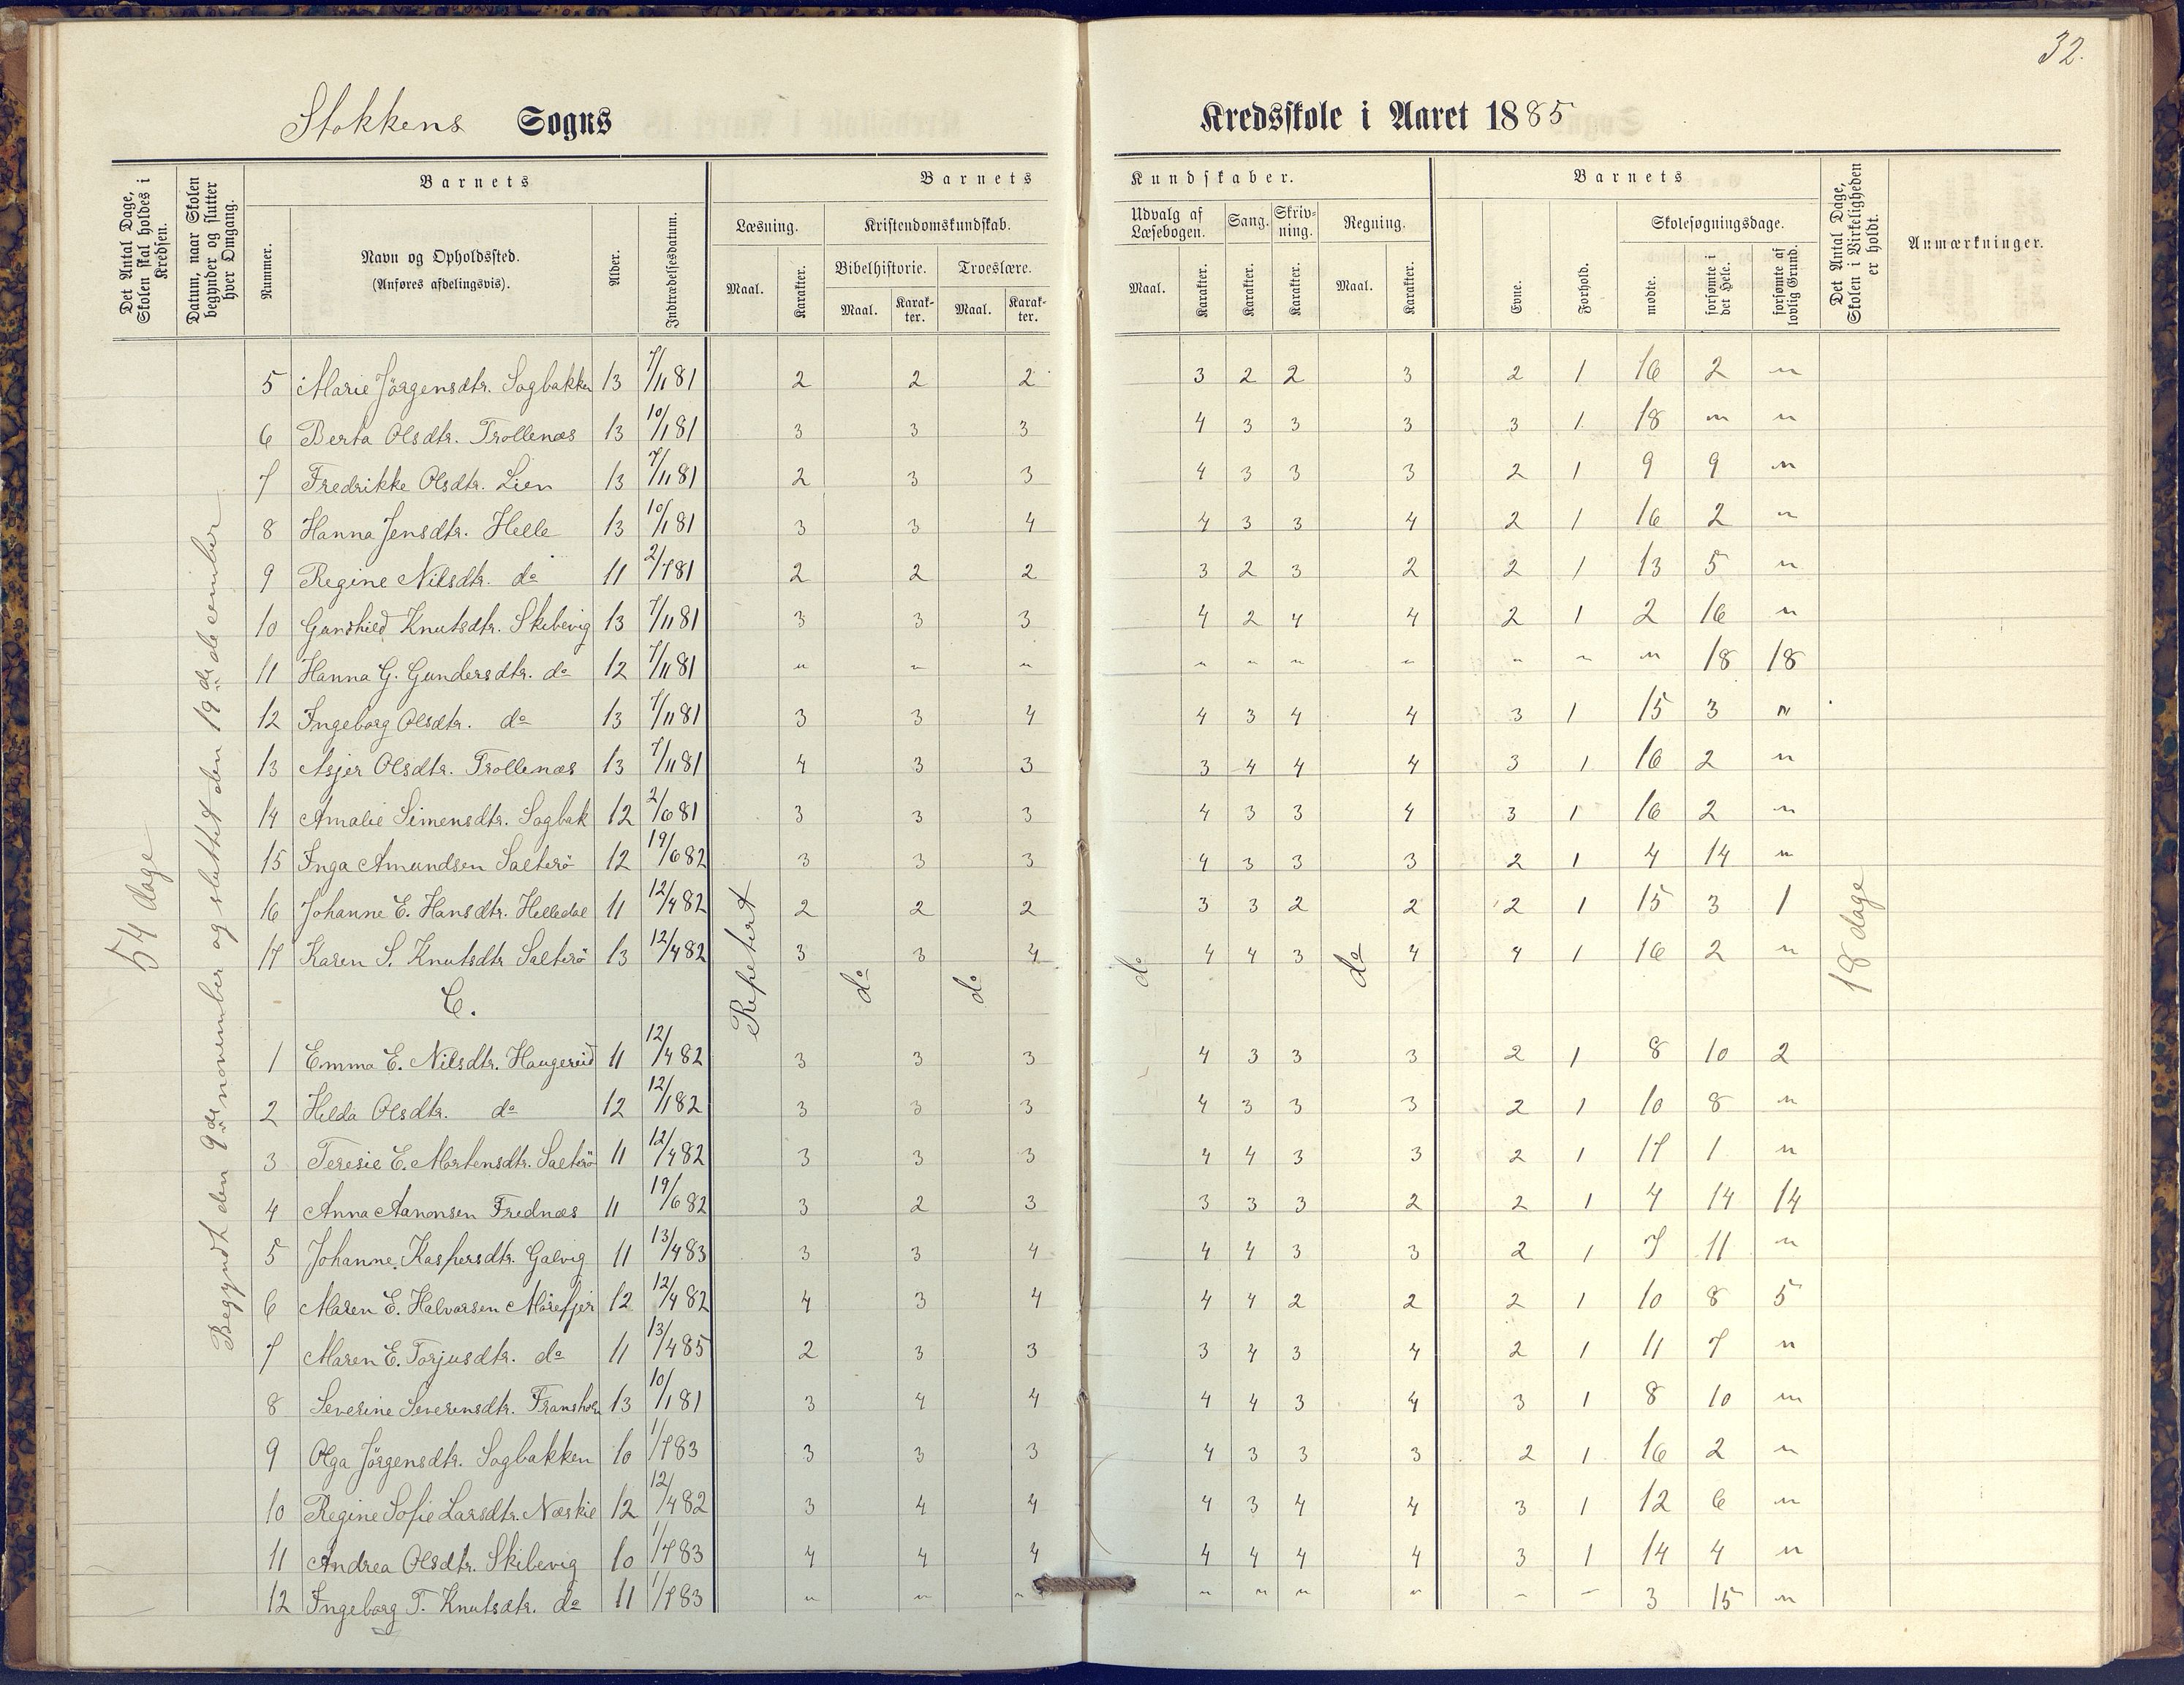 32.
Stokkens Sogns Kredsskole i Aaret 1885
Det Antal Dage, Skolen skal holdes i Kredsen.
Datum, naar Skolen begynder og slutter hver Omgang.
Barnets
Nummer.
Navn og Opholdssted. (Anføres afdelingsvis).
Alder.
Indtrædelsesdatum.
Barnets Kundskaber.
Læsning.
Maal. Karakter.
Kristendomskundskab.
Bibelhistorie. Troeslære.
Maal. Karakter. Maal. Karakter.
Udvalg af Læsebogen. Sang. Skrivning. Regning.
Maal. Karakter. Karakter. Karakter. Maal. Karakter.
Barnets
Evne. Forhold.
Skolesøgningsdage.
mødte. forsømte i det Hele. forsømte af lovlig Grund.
Det Antal Dage, Skolen i Virkeligheden er holdt.
Anmærkninger.
54 dage
Begyndt den 9de november og sluttet den 19de december
Repetert do do do do
18 dage
5 Marie Jörgensdtr. Sagbakken 13 7/11 81 2 2 2 3 2 2 3 2 1 16 2 "
6 Berta Olsdtr. Trollenæs 13 10/1 81 3 3 3 4 3 3 3 3 1 18 " "
7 Fredrikke Olsdtr. Lien 13 7/11 81 2 3 3 4 3 3 3 2 1 9 9 "
8 Hanna Jensdtr. Helle 13 10/1 81 3 3 4 4 3 3 4 2 1 16 2 "
9 Regine Nilsdtr. do 11 2/7 81 2 2 2 3 2 3 2 2 1 13 5 "
10 Gunhild Knutsdtr. Skibevig 13 7/11 81 3 3 3 4 2 4 4 2 1 2 16 "
11 Hanna G. Gundersdtr. do 12 7/11 81 " " " " " " " " " " 18 18
12 Ingeborg Olsdtr. do 13 7/11 81 3 3 4 4 3 4 4 3 1 15 3 "
13 Asjer Olsdtr. Trollenæs 13 7/11 81 4 3 3 3 4 4 4 3 1 16 2 "
14 Amalie Simensdtr. Sagbak 12 2/6 81 3 3 3 4 3 3 4 3 1 16 2 "
15 Inga Amundsen Salterö 12 19/6 82 3 3 3 4 3 3 3 2 1 4 14 "
16 Johanne E. Hansdtr. Helledal 11 12/4 82 2 2 2 3 3 2 2 2 1 15 3 1
17 Karen S. Knutsdtr Salterö 13 12/4 82 3 3 4 4 4 3 4 4 1 16 2 "
C.
1 Emma E. Nilsdtr. Haugereid 11 12/4 82 3 3 3 4 3 3 3 2 1 8 10 2
2 Helda Olsdtr. do 12 12/1 82 3 3 3 4 3 3 3 2 1 10 8 "
3 Teresie E. Mortensdtr. Salterö 11 12/4 82 3 3 3 4 4 3 3 2 1 17 1 "
4 Anna Aanonsen Frednæs 11 19/6 82 3 2 3 3 3 3 2 2 1 4 14 14
5 Johanne Kaspersdtr. Galvig 11 13/4 83 3 3 4 4 4 3 3 2 1 7 11 "
6 Maren E. Halvorsen Mörefjer 12 12/4 82 4 3 4 4 4 2 2 2 1 10 8 5
7 Maren E. Torjusdtr. do 11 13/4 85 2 3 3 3 4 3 4 2 1 11 7 "
8 Severine Severensdtr. 13 10/1 81 3 4 4 4 4 3 4 3 1 8 10 "
9 Olga Jörgensdtr. Sagbakken 10 1/7 83 3 3 3 4 3 3 3 2 1 16 2 "
10 Regine Sofie Larsdtr. Næskil 12 12/4 82 3 4 4 4 3 4 4 3 1 12 6 "
11 Andrea Olsdtr. Skibevig 10 1/7 83 4 4 4 4 4 4 4 3 1 14 4 "
12 Ingeborg T. Knutsdtr. do 11 1/7 83 " " " " " " " " " 3 15 "